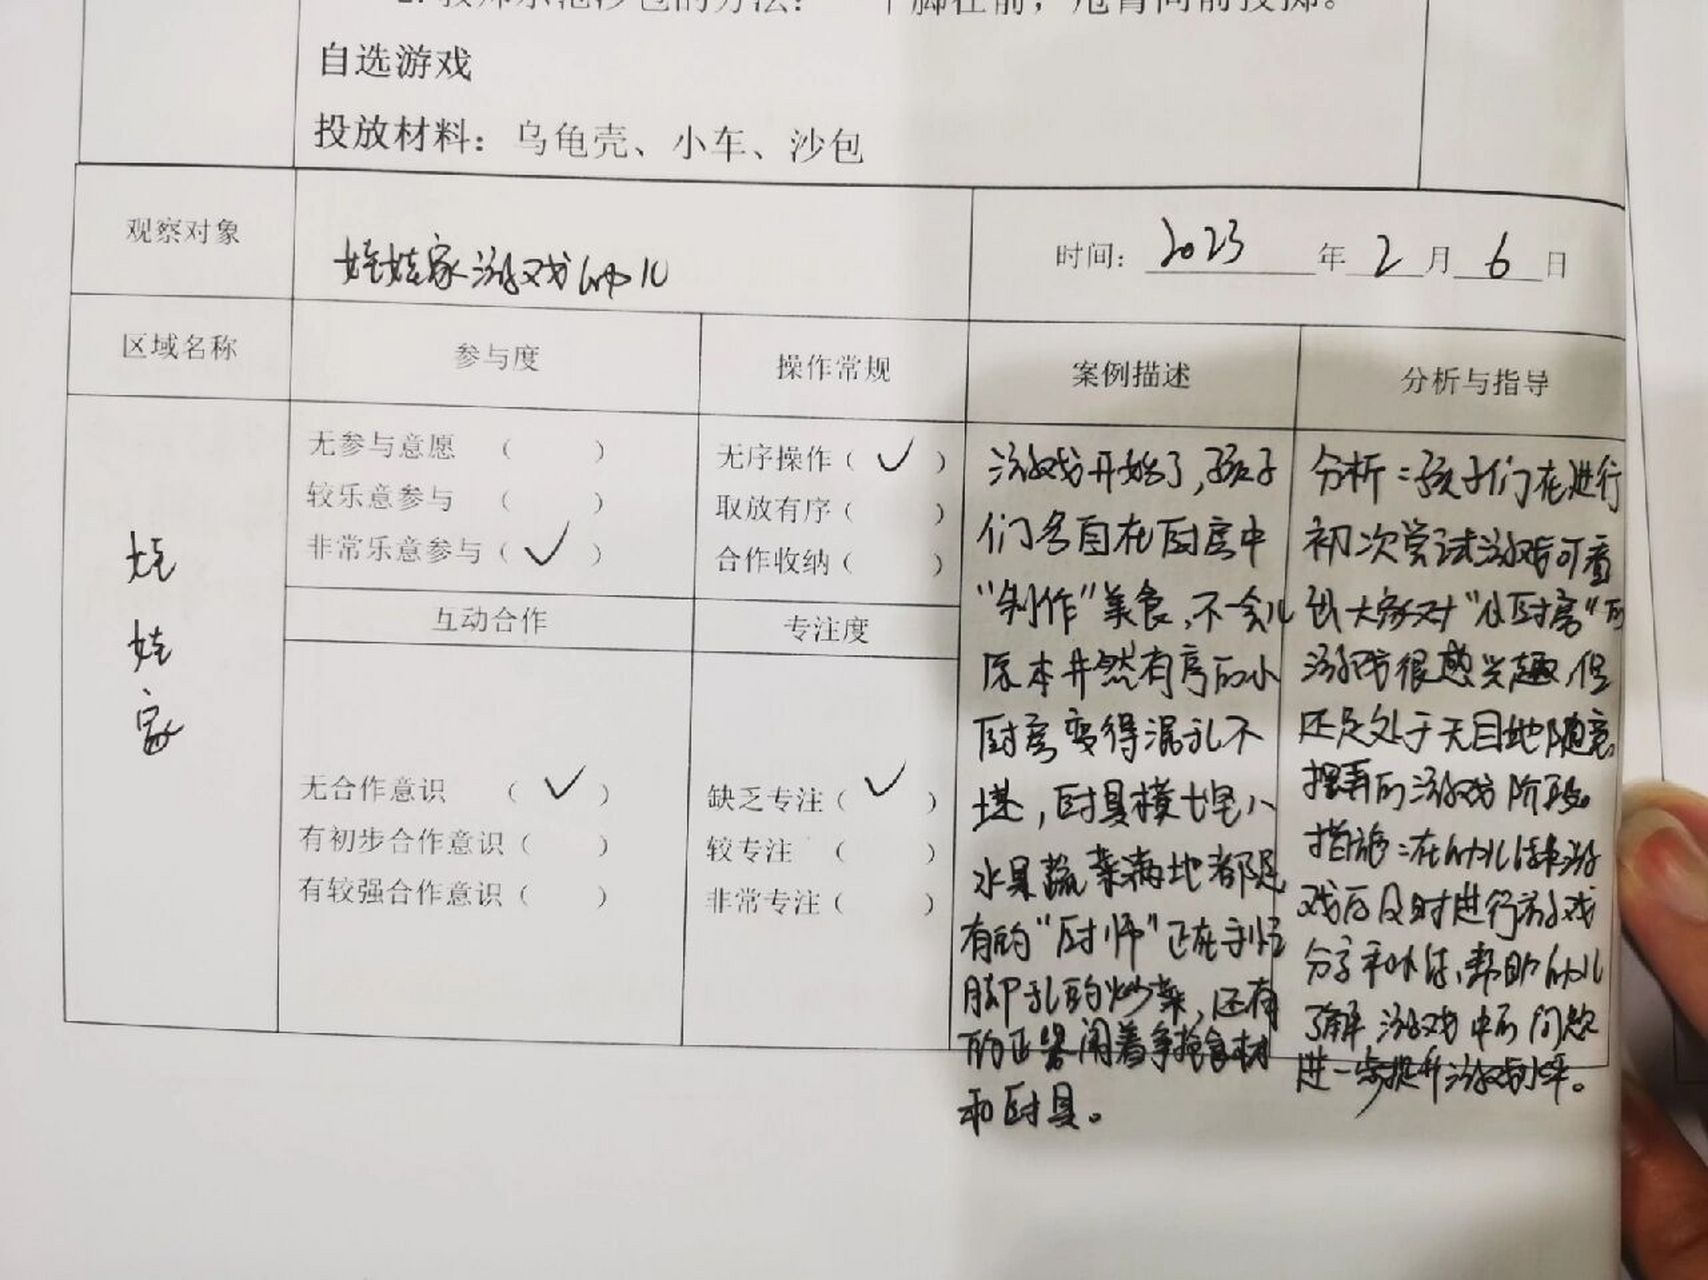 自选游戏
投放材料：乌龟壳、小车、沙包
观察对象
娃娃家游戏幼儿
时间：2023年2月6日
区域名称
参与度
操作常规
案例描述
分析与指导
娃
娃
家
无参与意愿（ ）
较乐意参与（ ）
非常乐意参与（✓）
无序操作（✓）
取放有序（ ）
合作收纳（ ）
互动合作
专注度
无合作意识（✓）
有初步合作意识（ ）
有较强合作意识（ ）
缺乏专注（✓）
较专注（ ）
非常专注（ ）
游戏开始了，孩子
们各自在厨房中
“制作”美食，不一会儿
原本井然有序的小
厨房变得混乱不
堪，厨具横七竖八
水果蔬菜满地都是
有的“厨师”正在手忙
脚乱的炒菜，还有
的正器闹着争抢食材
和厨具。
分析：孩子们在进行
初次尝试游戏可看
到大家对“小厨房”的
游戏很感兴趣，但
还是处于无目地随意
摆弄的游戏阶段。
措施：在幼儿结束游
戏后及时进行游戏
分享和小结，帮助幼儿
了解游戏中的问题
进一步提升游戏水平。